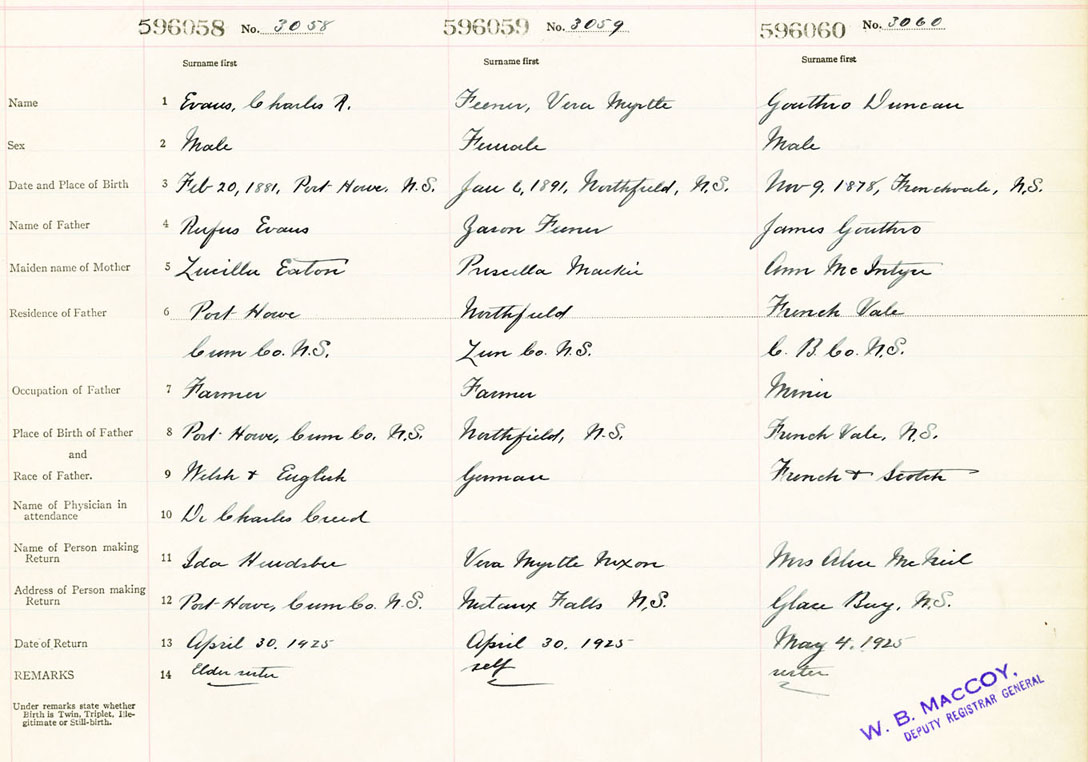 596058 No. 3058 596059 No. 3059 596060 No. 3060
Surname first Surname first Surname first
Name 1 Evans, Charles R. Feener, Vera Myrtle Gouthro Duncan
Sex 2 Male Female Male
Date and Place of Birth 3 Feb 20, 1881, Port Howe, N.S. Jan 6, 1891, Northfield, N.S. Nov 9, 1878, Frenchvale, N.S.
Name of Father 4 Rufus Evans Jason Feener James Gouthro
Maiden name of Mother 5 Eaton Priscilla Mackie Ann McIntyre
Residence of Father 6 Port Howe Northfield French Vale
Cum Co. N.S. Lun Co. N.S. C. B. Co. N.S.
Occupation of Father 7 Farmer Farmer Miner
Place of Birth of Father 8 Port Howe, Cum Co. N.S. Northfield, N.S. French Vale, N.S.
and
Race of Father. 9 Welsh & English German French & Scotch
Name of Physician in
attendance 10 Dr Charles Creed
Name of Person making
Return 11 Ida Vera Myrtle Nixon Mrs Alice McNeil
Address of Person making
Return 12 Port Howe, Cum Co. N.S. Nictaux Falls N.S. Glace Bay, N.S.
Date of Return 13 April 30. 1925 April 30. 1925 May 4. 1925
REMARKS 14 Elder sister self sister
Under remarks state whether
Birth is Twin, Triplet, Ille-
gitimate or Still-birth.
W. B. MACCOY,
DEPUTY REGISTRAR GENERAL